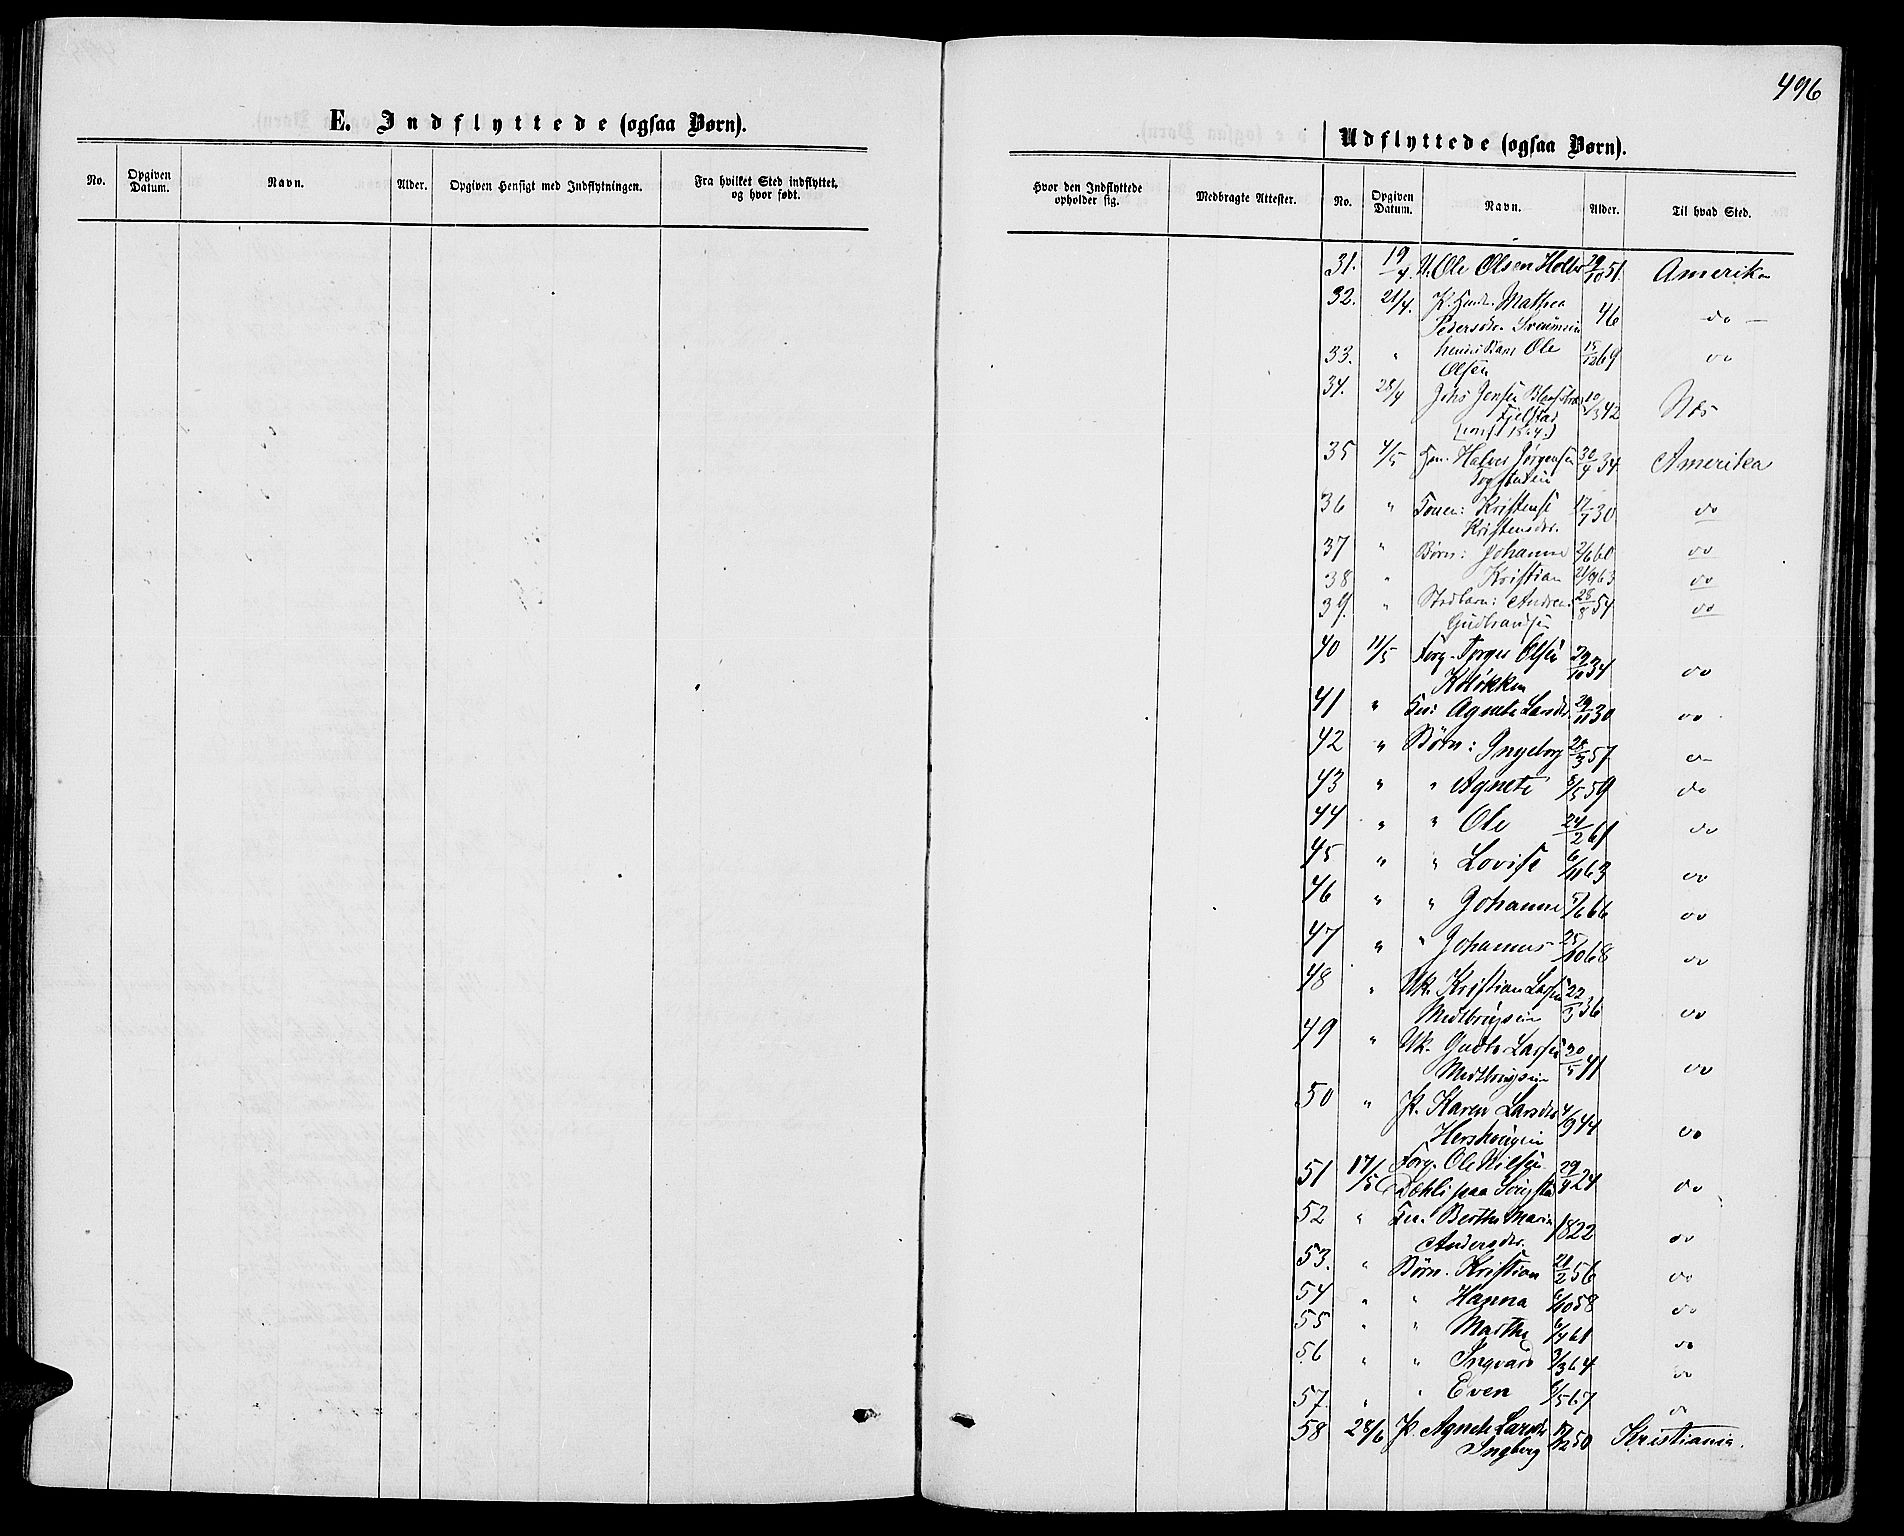 496
E. Indflyttede (ogsaa Børn).
Udflyttede (ogsaa Børn).
No. Opgiven Datum. Navn. Alder. Opgiven Hensigt med Indflytningen. Fra hvilket Sted indflyttet, og hvor født.
Hvor den Indflyttede opholder sig. Medbragte Attester. No. Opgiven Datum. Navn. Alder. Til hvad Sted.
31. 19/4. U. Ole Olsen 29/10 51. Amerika
32. 21/4. P. Mathea 46 do
Pedersdr.
33. " hendes Barn Ole 15/12 69 do
Olsen
34. 28/4 Johs Jensen 10/3 42 Næs
Fjelstad
35 4/5 Halvor Jørgensen 30/4 34. Amerika
36 " Konen: Kristense 17/7 30 do
Kristensdr.
37 " Børn: Johanne 2/6 61 do
38 " Kristian 21/9 63 do
39. " Stedbarn: Andrea 28/8 54 do
Gudbrandsen
40 11/5 Forg. Torger Olsen 29/10 34 do
41 " Kon: Agnete Larsdr. 29/11 30 do
42 " Børn: Ingeborg 28/3 57 do
43 " " Agnete 8/5 59 do
44 " " Ole 24/2 61 do
45 " " Lovise 6/11 63 do
46 " " Johanne 5/6 66 do
47 " " Johannes 25/10 68 do
48 " Uk. Kristian Larsen 22/3 36 do
49 " Uk. Gudbr. Larsen 20/5 41 do
50 " P. Karen Larsdr. 4/9 44 do
51 17/5 Forg. Ole Nilsen 29/4 24 do
Dæhli paa
52 " Kon. Berthe Marie 1822 do
Andersdr.
53. " Børn. Kristian 21/2 56 do
54 " " Hanna 6/10 58 do
55 " " Marthe 6/4 61 do
56 " " Ingvard 3/3 64 do
57. " " Even 6/5 67 do
58 28/6 P. Agnete Larsdr. 17/12 50 Kristiania.
Ingberg